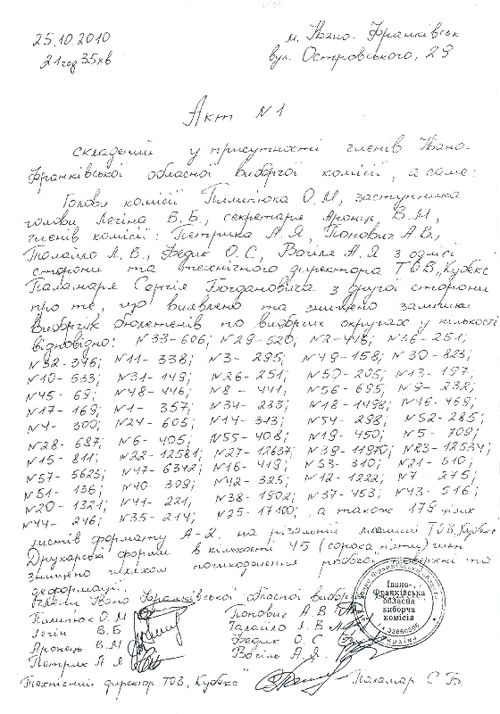 25.10.2010 м. Івано-Франківськ
21 год 35 хв вул. Островського, 29
Акт №1
складений у присутності членів Івано-
Франківської обласної виборчої комісії, а саме:
Голови комісії Пилипюка О.М, заступника
голови Легіна В.Б, секретаря Аронець В.М,
членів комісії: Петрика А.Я, Попович А.В.,
Талайло Л.В., Федик О.С, Вогіль А.Я з однієї
сторони та технічного директора ТОВ„Кубекс
Паламаря Сергія Богдановича з другої сторони
про те, що виявлено та знищено залишки
виборчих бюлетенів по виборчих округах у кількості
відповідно: №33-606; №29-520; №2-415; №16-251;
№32-376; №11-338; №3-295; №49-158; №30-823;
№10-533; №31-149; №26-251; №50-205; №13-197;
№45-69; №48-446; №8-441; №56-695; №9-232;
№17-169; №1-357; №34-233; №18-1498; №46-469;
№4-300; №24-605; №14-313; №54-298; №52-285;
№28-687; №6-405; №55-408; №19-450; №5-709;
№15-811; №22-12581; №27-12637; №39-11970; №23-12534;
№57-5625; №47-6342; №16-419; №53-310; №21-510;
№51-136; №40-399; №42-325; №12-1222; №7 275;
№20-1321; №41-221, №38-1902; №37-453; №43-516;
№44-246; №35-214; №25-17100, а також 179
листів формату А-2 на різальній машині ТОВ„Кубекс
Друкарські форми в кількості 45 (сорок п'ять) шт
знищено шляхом пошкодження робочої поверхні та
деформації.
Члени Івано-Франківської обласної виборчої
Пилипюк О.М Попович А В
Легін В.Б Талайло Л В
Аронець В.М Федик О С
Петрик А Я Вогіль А.Я.
Технічний директор ТОВ„Кубекс" Паламар С Б
Івано-
Франківська
обласна
виборча
комісія
Україна